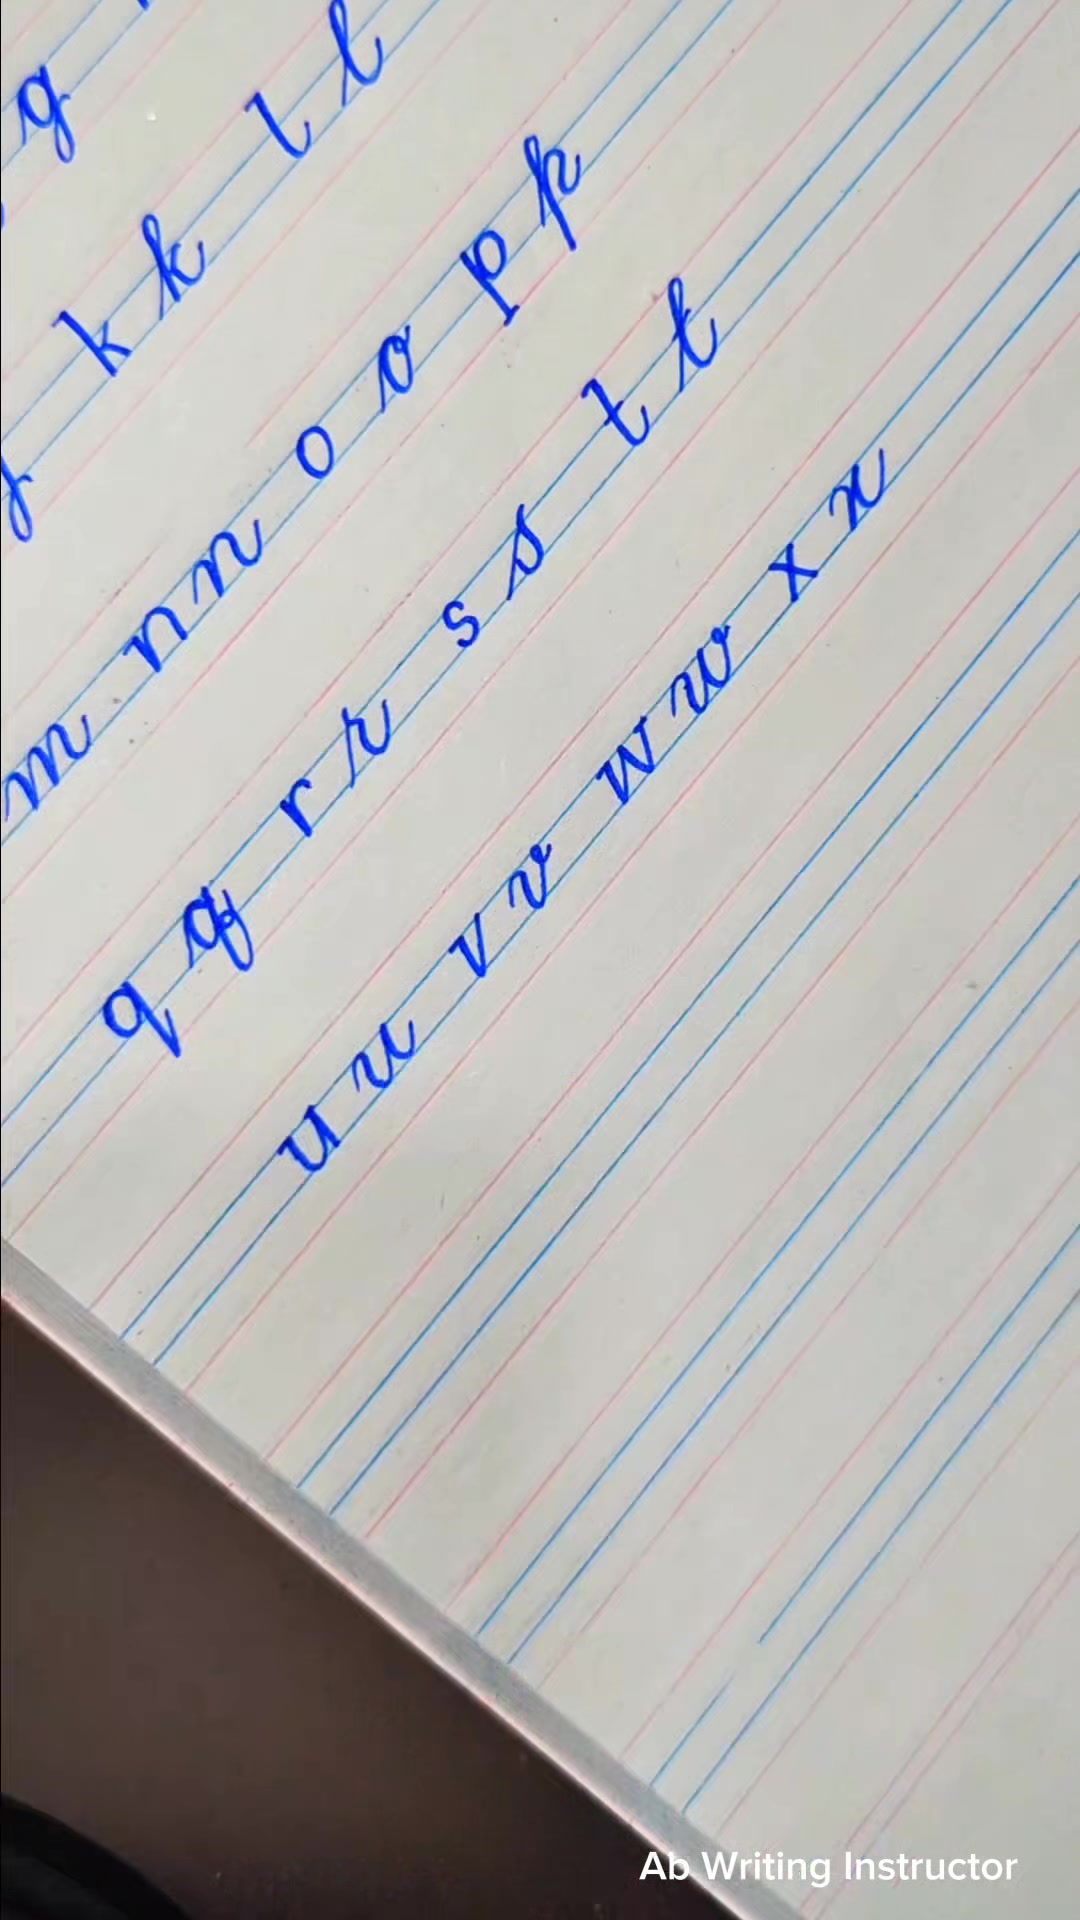 g
k k l l
m n n o o p p
q q r r s s t t
u u v v w w x x
Ab Writing Instructor